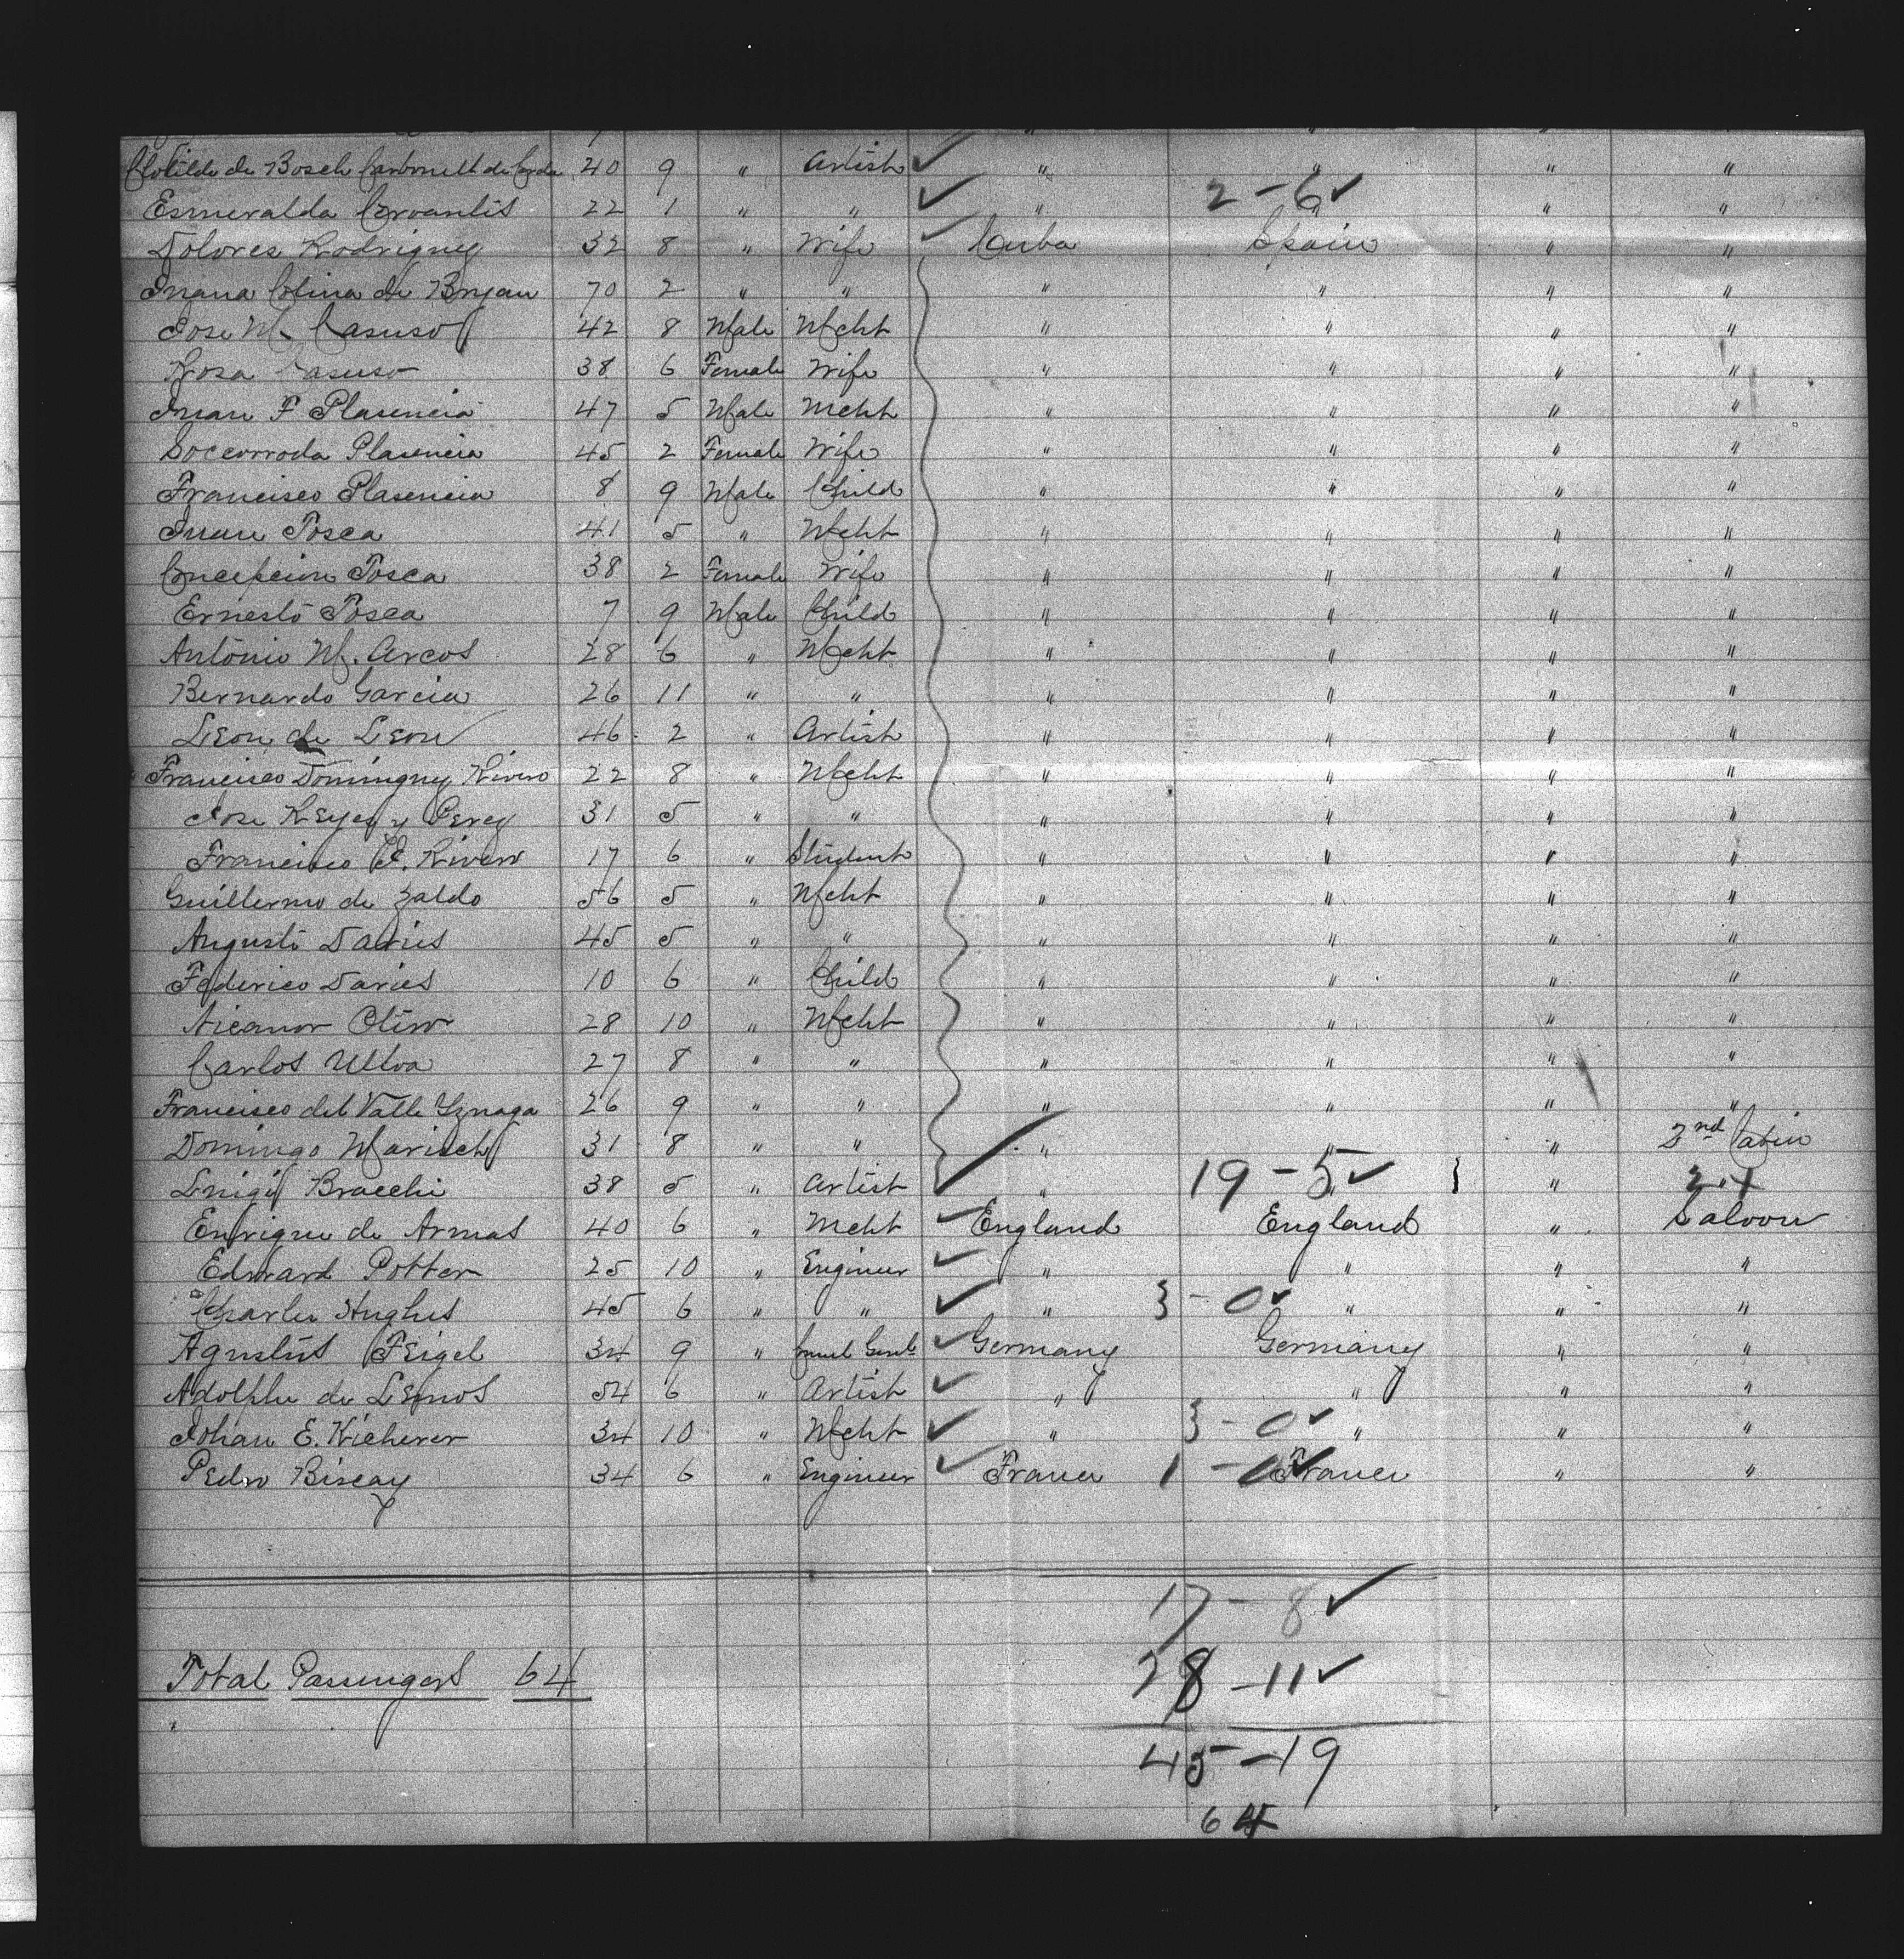 Clotilde de Bosch Carbonell de 40 9 " Artist " " " "
Esmeralda Cervantes 22 1 " " " 2-6 " " "
Dolores Rodriguez 32 8 " Wife Cuba Spain " "
Juana Colina de Bryan 70 2 " " " " " "
Jose M. Casuso 42 8 Male Mcht " " " "
Rosa Casuso 38 6 Female Wife " " " "
Juan F Plasencia 47 5 Male Mcht " " " "
Socorroda Plasencia 45 2 Female Wife " " " "
Francisco Plasencia 8 9 Male Child " " " "
Juan Tosca 41 5 " Mcht " " " "
Concepcion Tosca 38 2 Female Wife " " " "
Ernesto Tosca 7 9 Male Child " " " "
Antonio M. Arcos 28 6 " Mcht " " " "
Bernardo Garcia 26 11 " " " " " "
Leon de Leon 46 2 " Artist " " " "
Francisco Dominguez Rivero 22 8 " Mcht " " " "
Jose Reyes y Perez 31 5 " " " " " "
Francisco E. Rivero 17 6 " Student " " " "
Guillermo de Zaldo 56 5 " Mcht " " " "
Augusto Daries 45 5 " " " " " "
Federico Daries 10 6 " Child " " " "
Nicanor Otero 28 10 " Mcht " " " "
Carlos Ulloa 27 8 " " " " " "
Francisco del Valle Yznaga 26 9 " " " " " "
Domingo Marisch 31 8 " " " " " 2nd Cabin
Luigi Bracchi 38 5 " Artist " 19-5 " "
Enrique de Armas 40 6 " Mcht England England " Saloon
Edward Potter 25 10 " Engineer " " " "
Charles Hughes 45 6 " " " 3 - 0 " " "
Agustus Feigel 34 9 " Germany Germany " "
Adolphe de Lemos 54 6 " Artist " " " "
Johan E. Kicherer 34 10 " Mcht " 3 - 0 " " "
Pedro Biscay 34 6 " Engineer France 1 - 0 France " "
17 - 8
Total Passengers 64 28 - 11
45 - 19
64